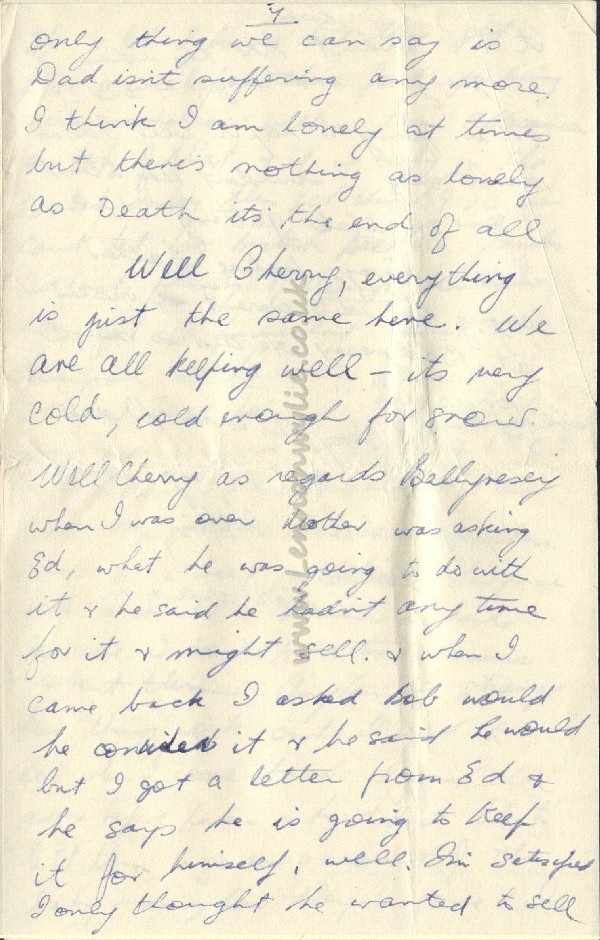 4
only thing we can say is
Dad isnt suffering any more.
I think I am lonely at times
but there's nothing as lonely
as Death its the end of all
Well Cherry, everything
is just the same here. We
are all keeping well - its very
cold, cold enough for snow.
Well Cherry as regards Ballyresey
when I was over Mother was asking
Ed, what he was going to do with
it & he said he hadnt any time
for it & might sell. & when I
came back I asked Bob would
he consider it & he said he would
but I got a letter from Ed &
he says he is going to keep
it for himself, well. Im satisfied
I only thought he wanted to sell